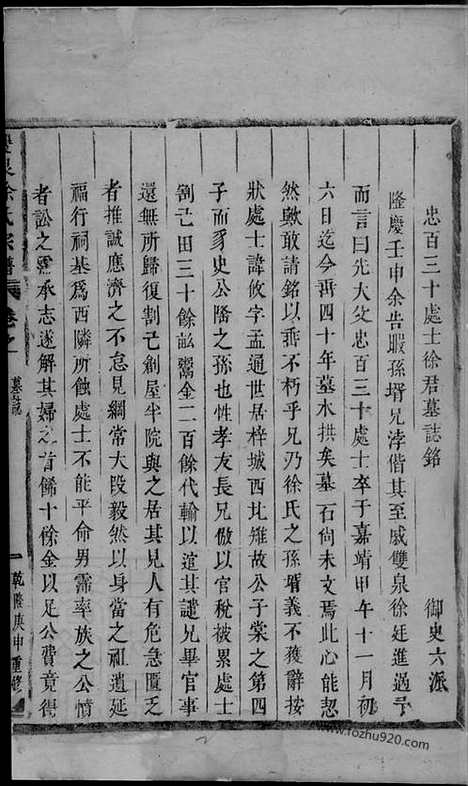 忠百三十處士徐君墓誌銘
御史六派
隆慶壬申余告暇孫壻兄浡偕其至戚雙泉徐廷進過予
而言曰先大父忠百三十處士卒于嘉靖甲午十一月初
六日迄今再四十年墓木拱矣墓石尚未文焉此心能恝
然歟敢請銘以乖不朽乎兄乃徐氏之孫壻義不獲辭按
狀處士諱攸字孟通世居梓城西北雉故公子棠之第四
子而豸史公隆之孫也性孝友長兄倣以官稅被累處士
割己田三十餘畝鬻金二百餘代輸以逭其譴兄畢官事
還無所歸復割己創屋半院與之居其見人有危急匱乏
者推誠應濟之不怠見綱常大段毅然以身當之祖遺延
福行祠基為西隣所蝕處士不能平命男霈率族之公憤
者訟之霈承志遂解其婦之首餙十餘金以足公費竟得
徐氏宗譜 卷之
墓誌
一 乾隆庚申重修
www.fozhu920.com